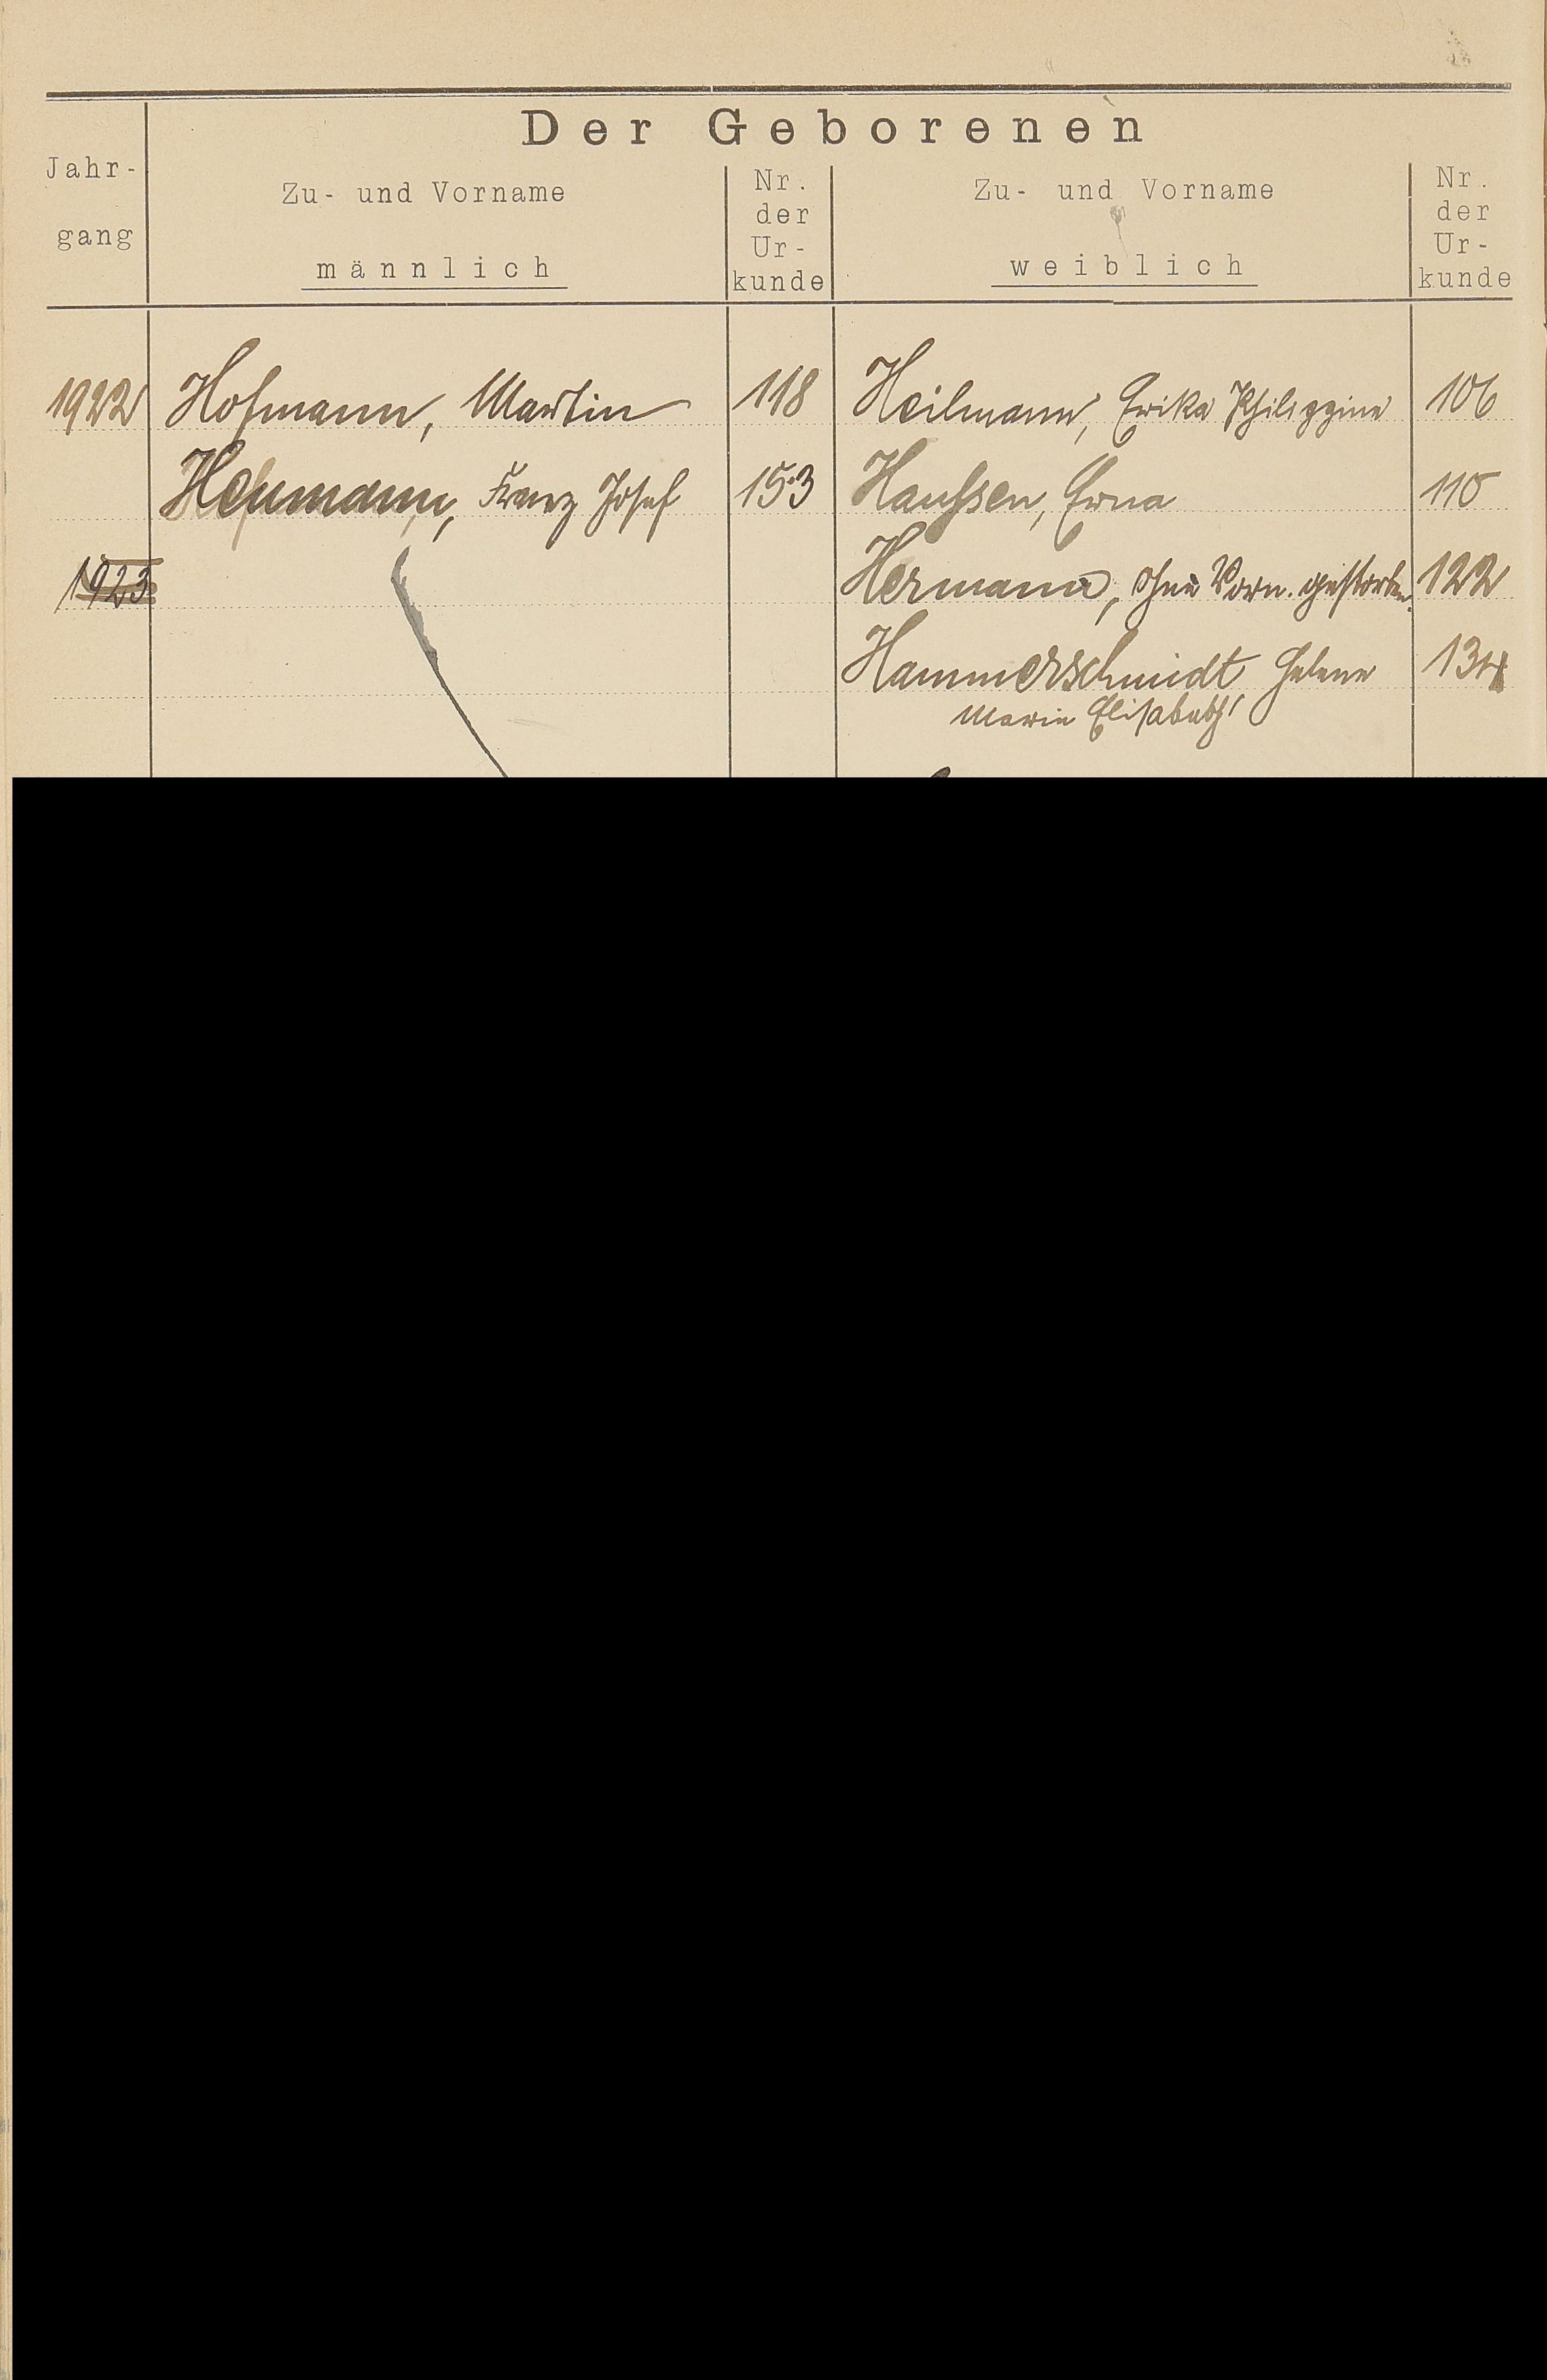 Der Geborenen
Jahr-
gang
Zu- und Vorname
männlich
Nr.
der
Ur-
kunde
Zu- und Vorname
weiblich
Nr.
der
Ur-
kunde
1922 Hofmann, Martin 118 Heilmann, Erika Philippine 106
Franz Josef 153 Haußen, Erna 110
1923 Hermann, ohne Vorn. gestorben. 122
Hammerschmidt, Helene 134
Marie Elisabeth